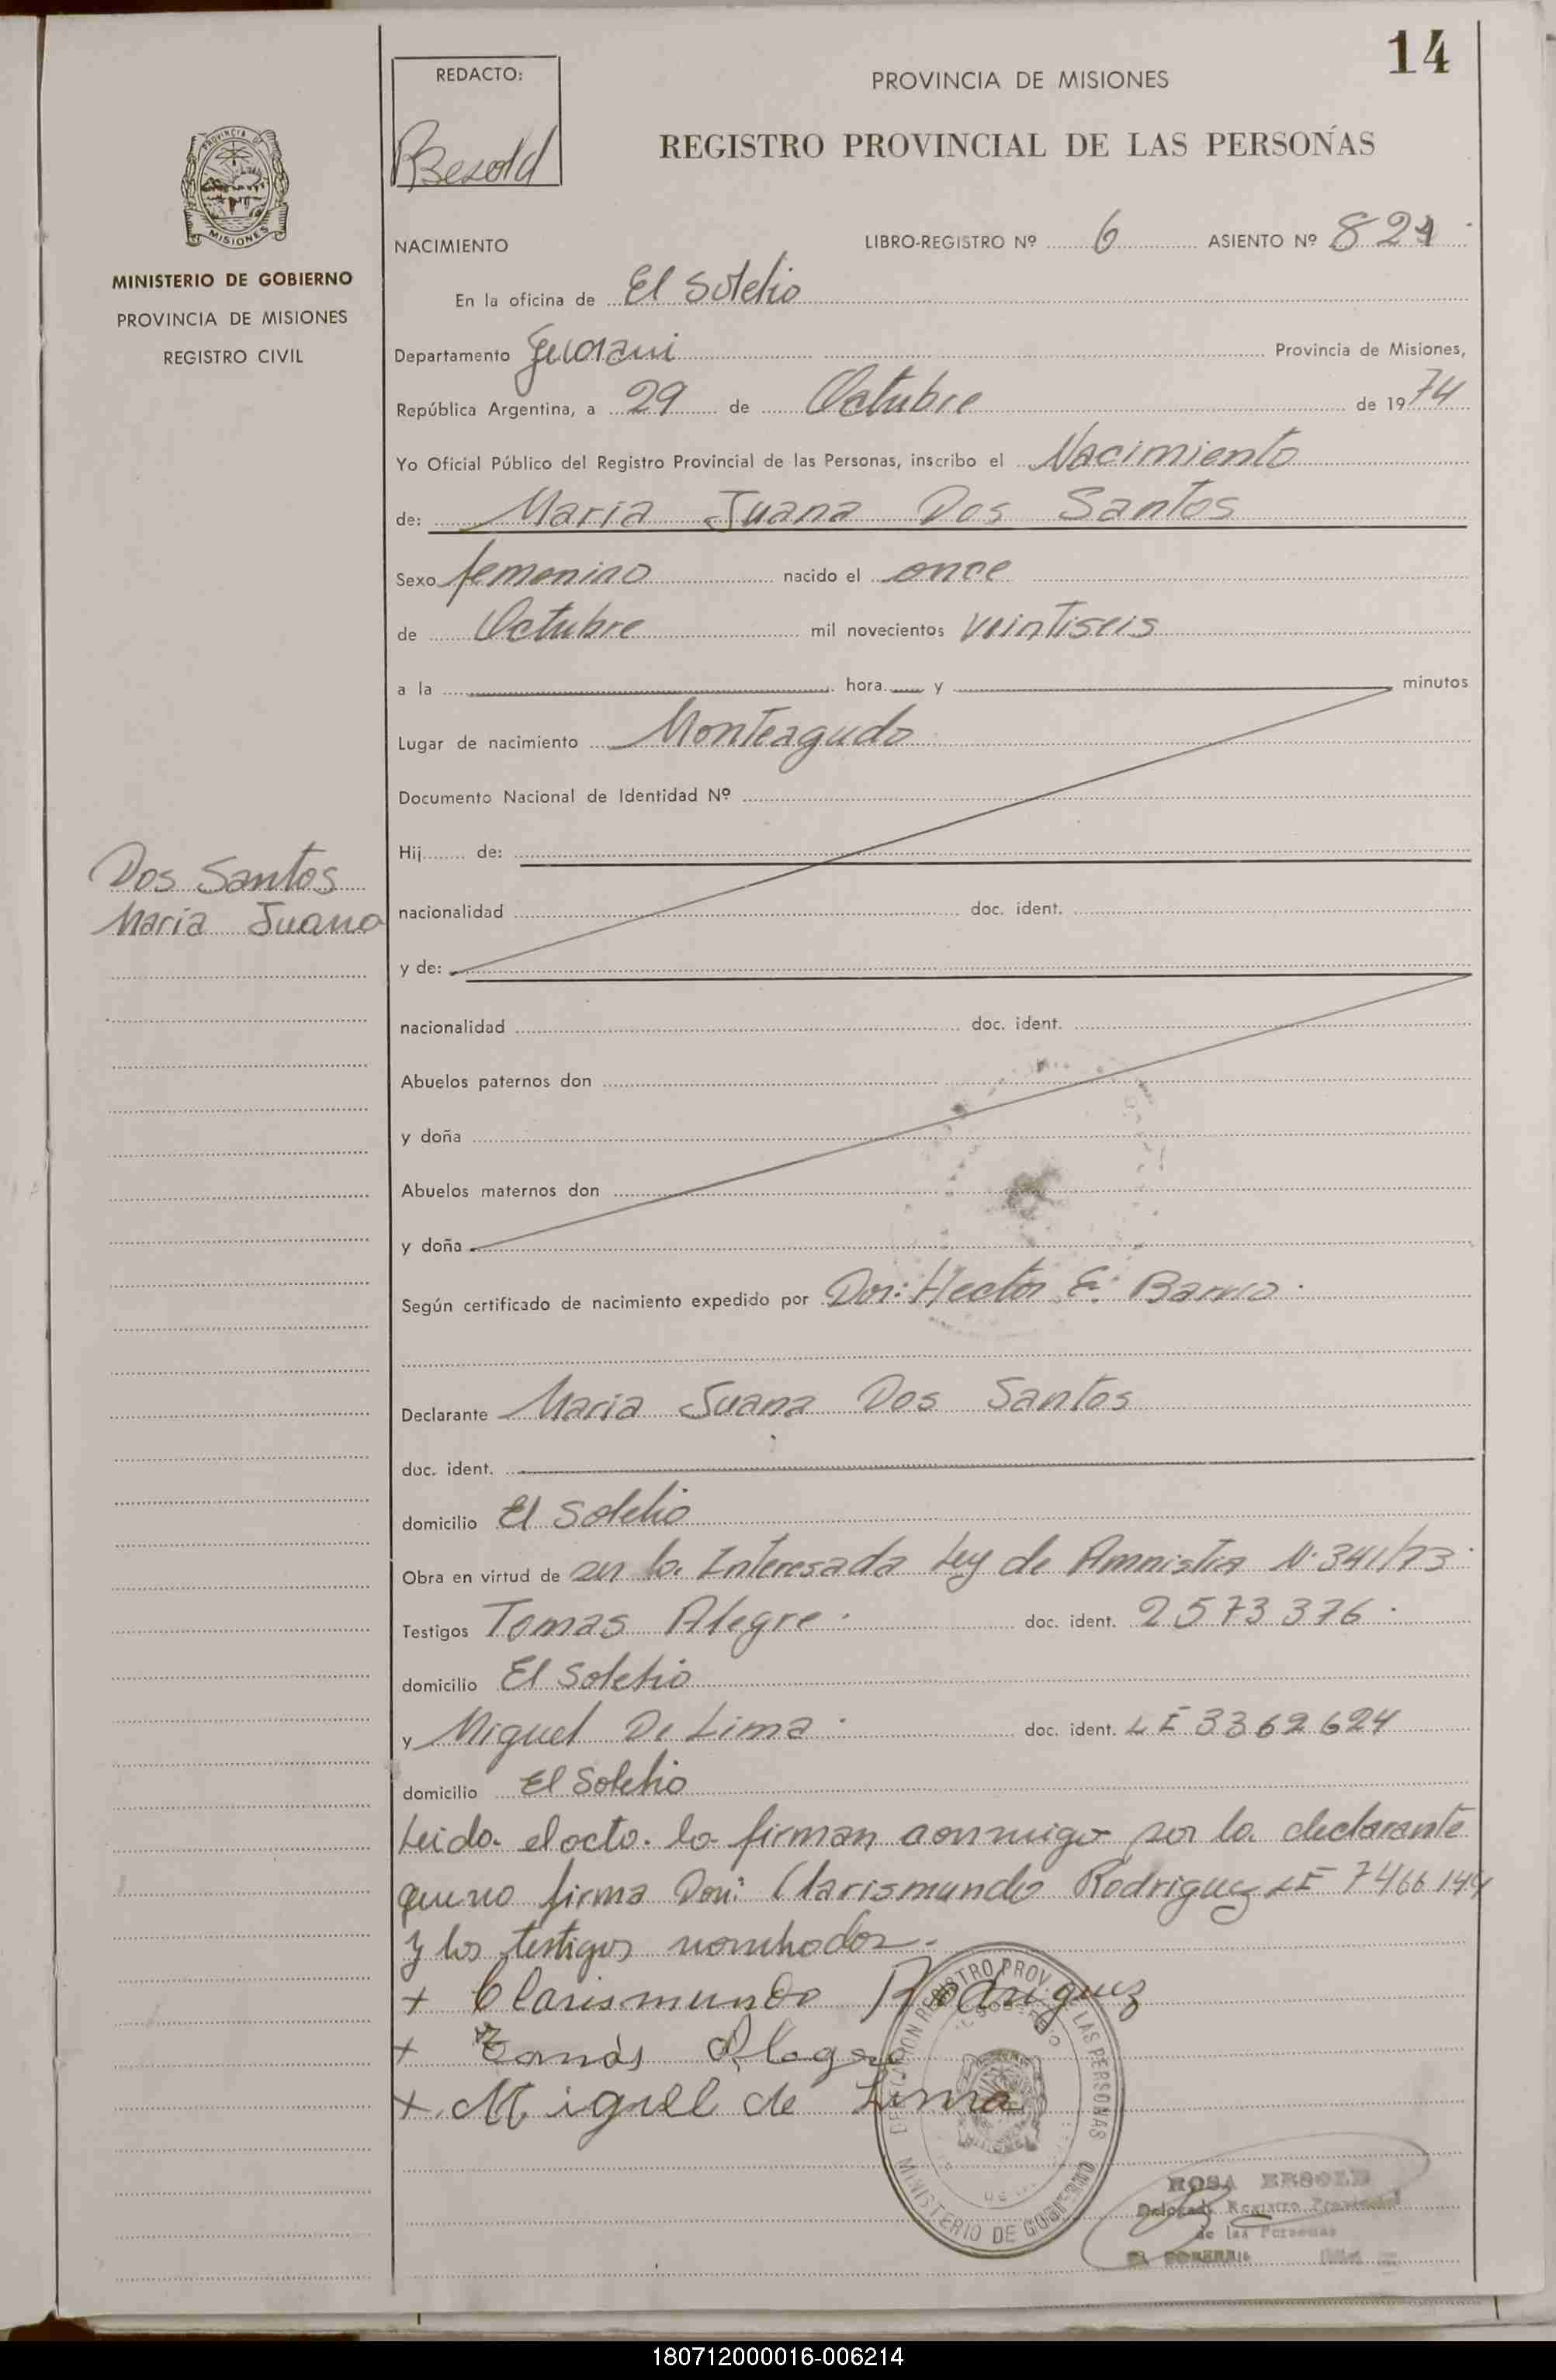 14
REDACTO:
RBesold
PROVINCIA DE MISIONES
REGISTRO PROVINCIAL DE LAS PERSONAS
PROVINCIA
MISIONES
MINISTERIO DE GOBIERNO
PROVINCIA DE MISIONES
REGISTRO CIVIL
NACIMIENTO LIBRO-REGISTRO Nº 6 ASIENTO Nº 821
En la oficina de El Soletio
Departamento Guarani Provincia de Misiones,
República Argentina, a 29 de Octubre de 1974
Yo Oficial Público del Registro Provincial de las Personas, inscribo el Nacimiento
de: Maria Juana Dos Santos
Sexo femenino nacido el once
de Octubre mil novecientos veintiseis
a la hora y minutos
Lugar de nacimiento Monteagudo
Documento Nacional de Identidad Nº
Hij de:
Dos Santos
Maria Juana
nacionalidad doc. ident.
y de:
nacionalidad doc. ident.
Abuelos paternos don
y doña
Abuelos maternos don
y doña
Según certificado de nacimiento expedido por Dor: Hector E. Barrio.
Declarante Maria Juana Dos Santos
doc. ident.
domicilio El Soletio
Obra en virtud de ser la Interesada Ley de Amnistia N. 341/73.
Testigos Tomas Alegre. doc. ident. 2573376.
domicilio El Soletio
y Miguel De Lima. doc. ident. LE 3362624
domicilio El Soletio
Leida el acto. lo firman conmigo por la declarante
que no firma Don: Clarismundo Rodriguez LE 7466144
y los testigos nombrados.
+ Clarismundo Rodriguez
+ Tomás Alegre
+ Miguel de Lima
DELEGACION REGISTRO PROV. DE LAS PERSONAS
MINISTERIO DE GOBIERNO
ROSA BESOLD
Delegada Registro Provincial
de las Personas
180712000016-006214